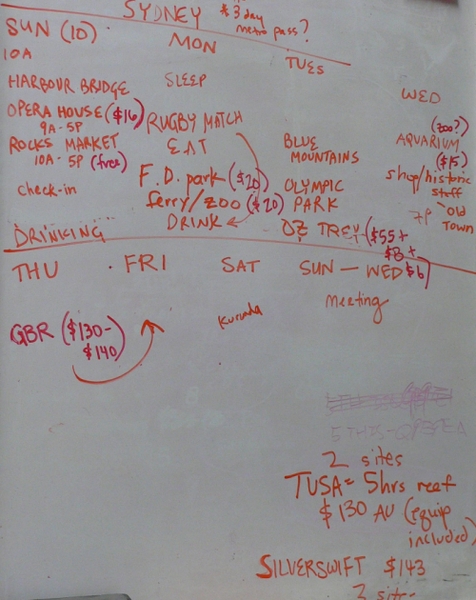 SYDNEY
$ 3 day
metro pass?
SUN (10)
10A
HARBOUR BRIDGE
OPERA HOUSE ($16)
9A-5P
ROCKS MARKET
10A-5P (free)
check-in
DRINKING
MON
SLEEP
RUGBY MATCH
EAT
F.D. park ($20)
ferry/zoo ($20)
DRINK
TUES
BLUE
MOUNTAINS
OLYMPIC
PARK
OZ TREY ($55+
$8+
$6)
WED
(zoo?)
AQUARIUM
($15)
shop/historic
stuff
7P
Old
Town
THU
GBR ($130-
$140)
FRI
SAT
Kuranda
SUN - WED
meeting
2 sites
TUSA = 5hrs reef
$130 AU (equip
included)
SILVERSWIFT $143